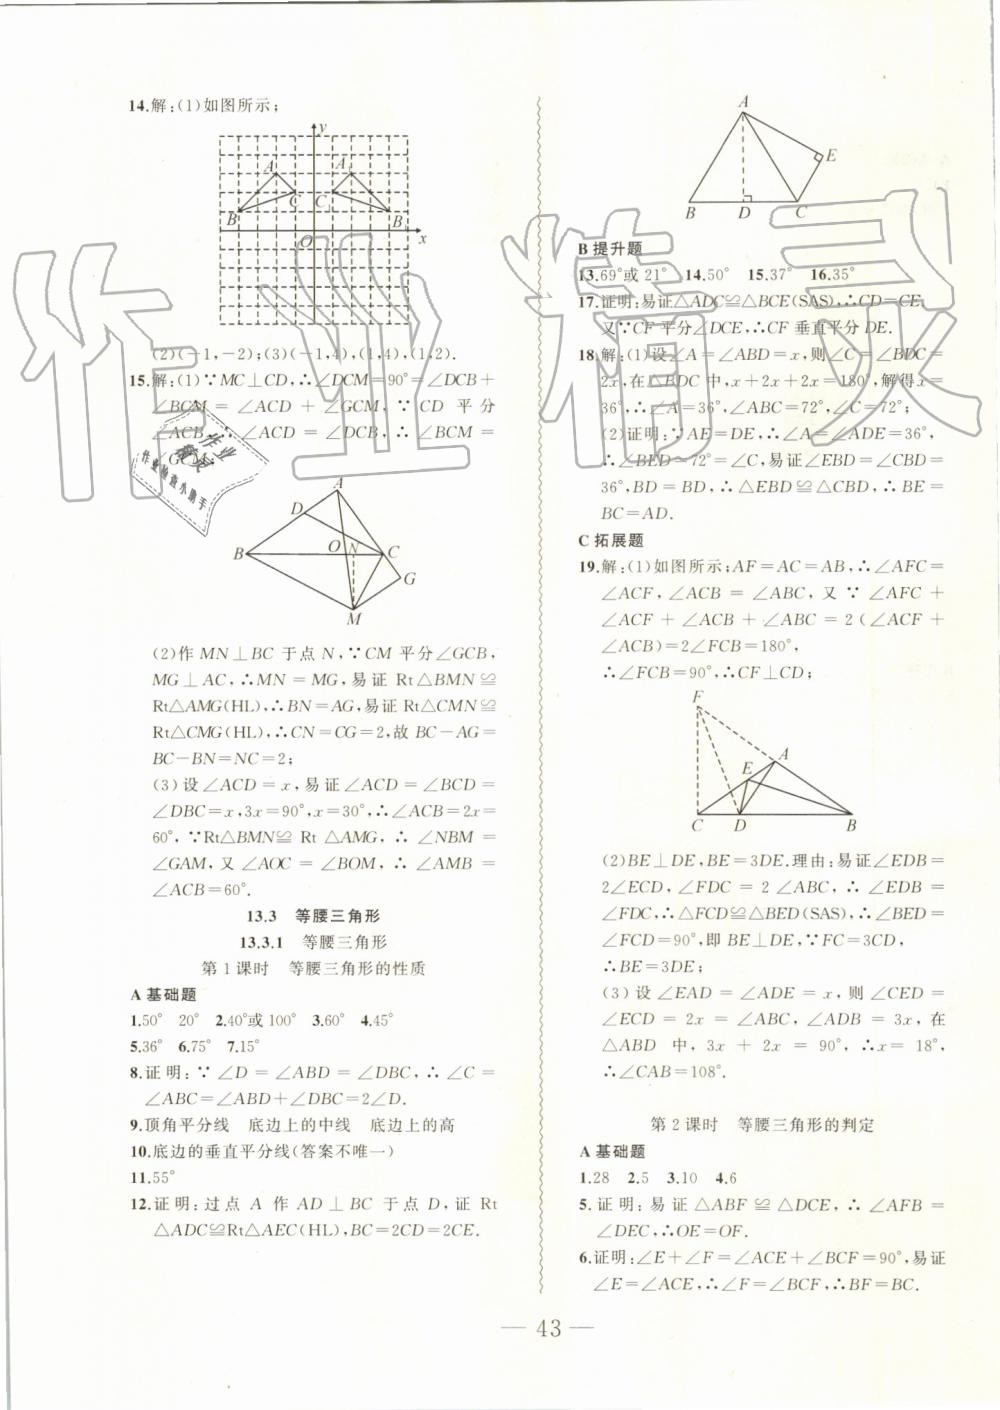 14.解:(1)如图所示;
y
A A
C C
B B
O x
(2)(-1,-2);(3)(-1,4),(1,4),(1,2).
15.解:(1)∵MC⊥CD,∴∠DCM=90°=∠DCB+
∠BCM = ∠ACD + ∠GCM, ∵ CD 平分
∠ACB, ∴ ∠ACD = ∠DCB, ∴ ∠BCM =
∠GCM;
A
D
B O N C
G
M
(2)作 MN⊥BC 于点 N,∵CM 平分∠GCB,
MG⊥AC,∴MN=MG,易证 Rt△BMN≌
Rt△AMG(HL),∴BN=AG,易证 Rt△CMN≌
Rt△CMG(HL),∴CN=CG=2,故 BC-AG=
BC-BN=NC=2;
(3)设∠ACD=x,易证∠ACD=∠BCD=
∠DBC=x,3x=90°,x=30°,∴∠ACB=2x=
60°,∵Rt△BMN≌ Rt △AMG, ∴ ∠NBM =
∠GAM,又∠AOC = ∠BOM, ∴ ∠AMB =
∠ACB=60°.
13.3 等腰三角形
13.3.1 等腰三角形
第1课时 等腰三角形的性质
A 基础题
1.50° 20° 2.40°或100° 3.60° 4.45°
5.36° 6.75° 7.15°
8.证明:∵∠D=∠ABD=∠DBC,∴∠C=
∠ABC=∠ABD+∠DBC=2∠D.
9.顶角平分线 底边上的中线 底边上的高
10.底边的垂直平分线(答案不唯一)
11.55°
12.证明:过点 A 作 AD⊥BC 于点 D,证 Rt
△ADC≌Rt△AEC(HL),BC=2CD=2CE.
A
E
B D C
B 提升题
13.69°或 21° 14.50° 15.37° 16.35°
17.证明:易证△ADC≌△BCE(SAS),∴CD=CE,
又∵CF 平分∠DCE,∴CF 垂直平分 DE.
18.解:(1)设∠A=∠ABD=x,则∠C=∠BDC=
2x,在△BDC 中,x+2x+2x=180°,解得 x=
36°,∴∠A=36°,∠ABC=72°,∠C=72°;
(2)证明:∵AE=DE,∴∠A=∠ADE=36°,
∴∠BED=72°=∠C,易证∠EBD=∠CBD=
36°,BD=BD,∴△EBD≌△CBD,∴BE=
BC=AD.
C 拓展题
19.解:(1)如图所示;AF=AC=AB,∴∠AFC=
∠ACF,∠ACB = ∠ABC,又 ∵ ∠AFC +
∠ACF + ∠ACB + ∠ABC = 2 (∠ACF +
∠ACB)=2∠FCB=180°,
∴∠FCB=90°,∴CF⊥CD;
F
A
E
C D B
(2)BE⊥DE,BE=3DE.理由:易证∠EDB=
2∠ECD,∠FDC = 2 ∠ABC, ∴ ∠EDB =
∠FDC,∴△FCD≌△BED(SAS),∴∠BED=
∠FCD=90°,即 BE⊥DE,∵FC=3CD,
∴BE=3DE;
(3)设∠EAD=∠ADE=x,则∠CED=
∠ECD=2x=∠ABC,∠ADB=3x,在
△ABD 中,3x + 2x = 90°,∴x= 18°,
∴∠CAB=108°.
第2课时 等腰三角形的判定
A 基础题
1.28 2.5 3.10 4.6
5.证明:易证△ABF≌△DCE,∴∠AFB=
∠DEC,∴OE=OF.
6.证明:∠E+∠F=∠ACE+∠BCF=90°,易证
∠E=∠ACE,∴∠F=∠BCF,∴BF=BC.
— 43 —
作业精灵
作业
精灵
作业检查小助手